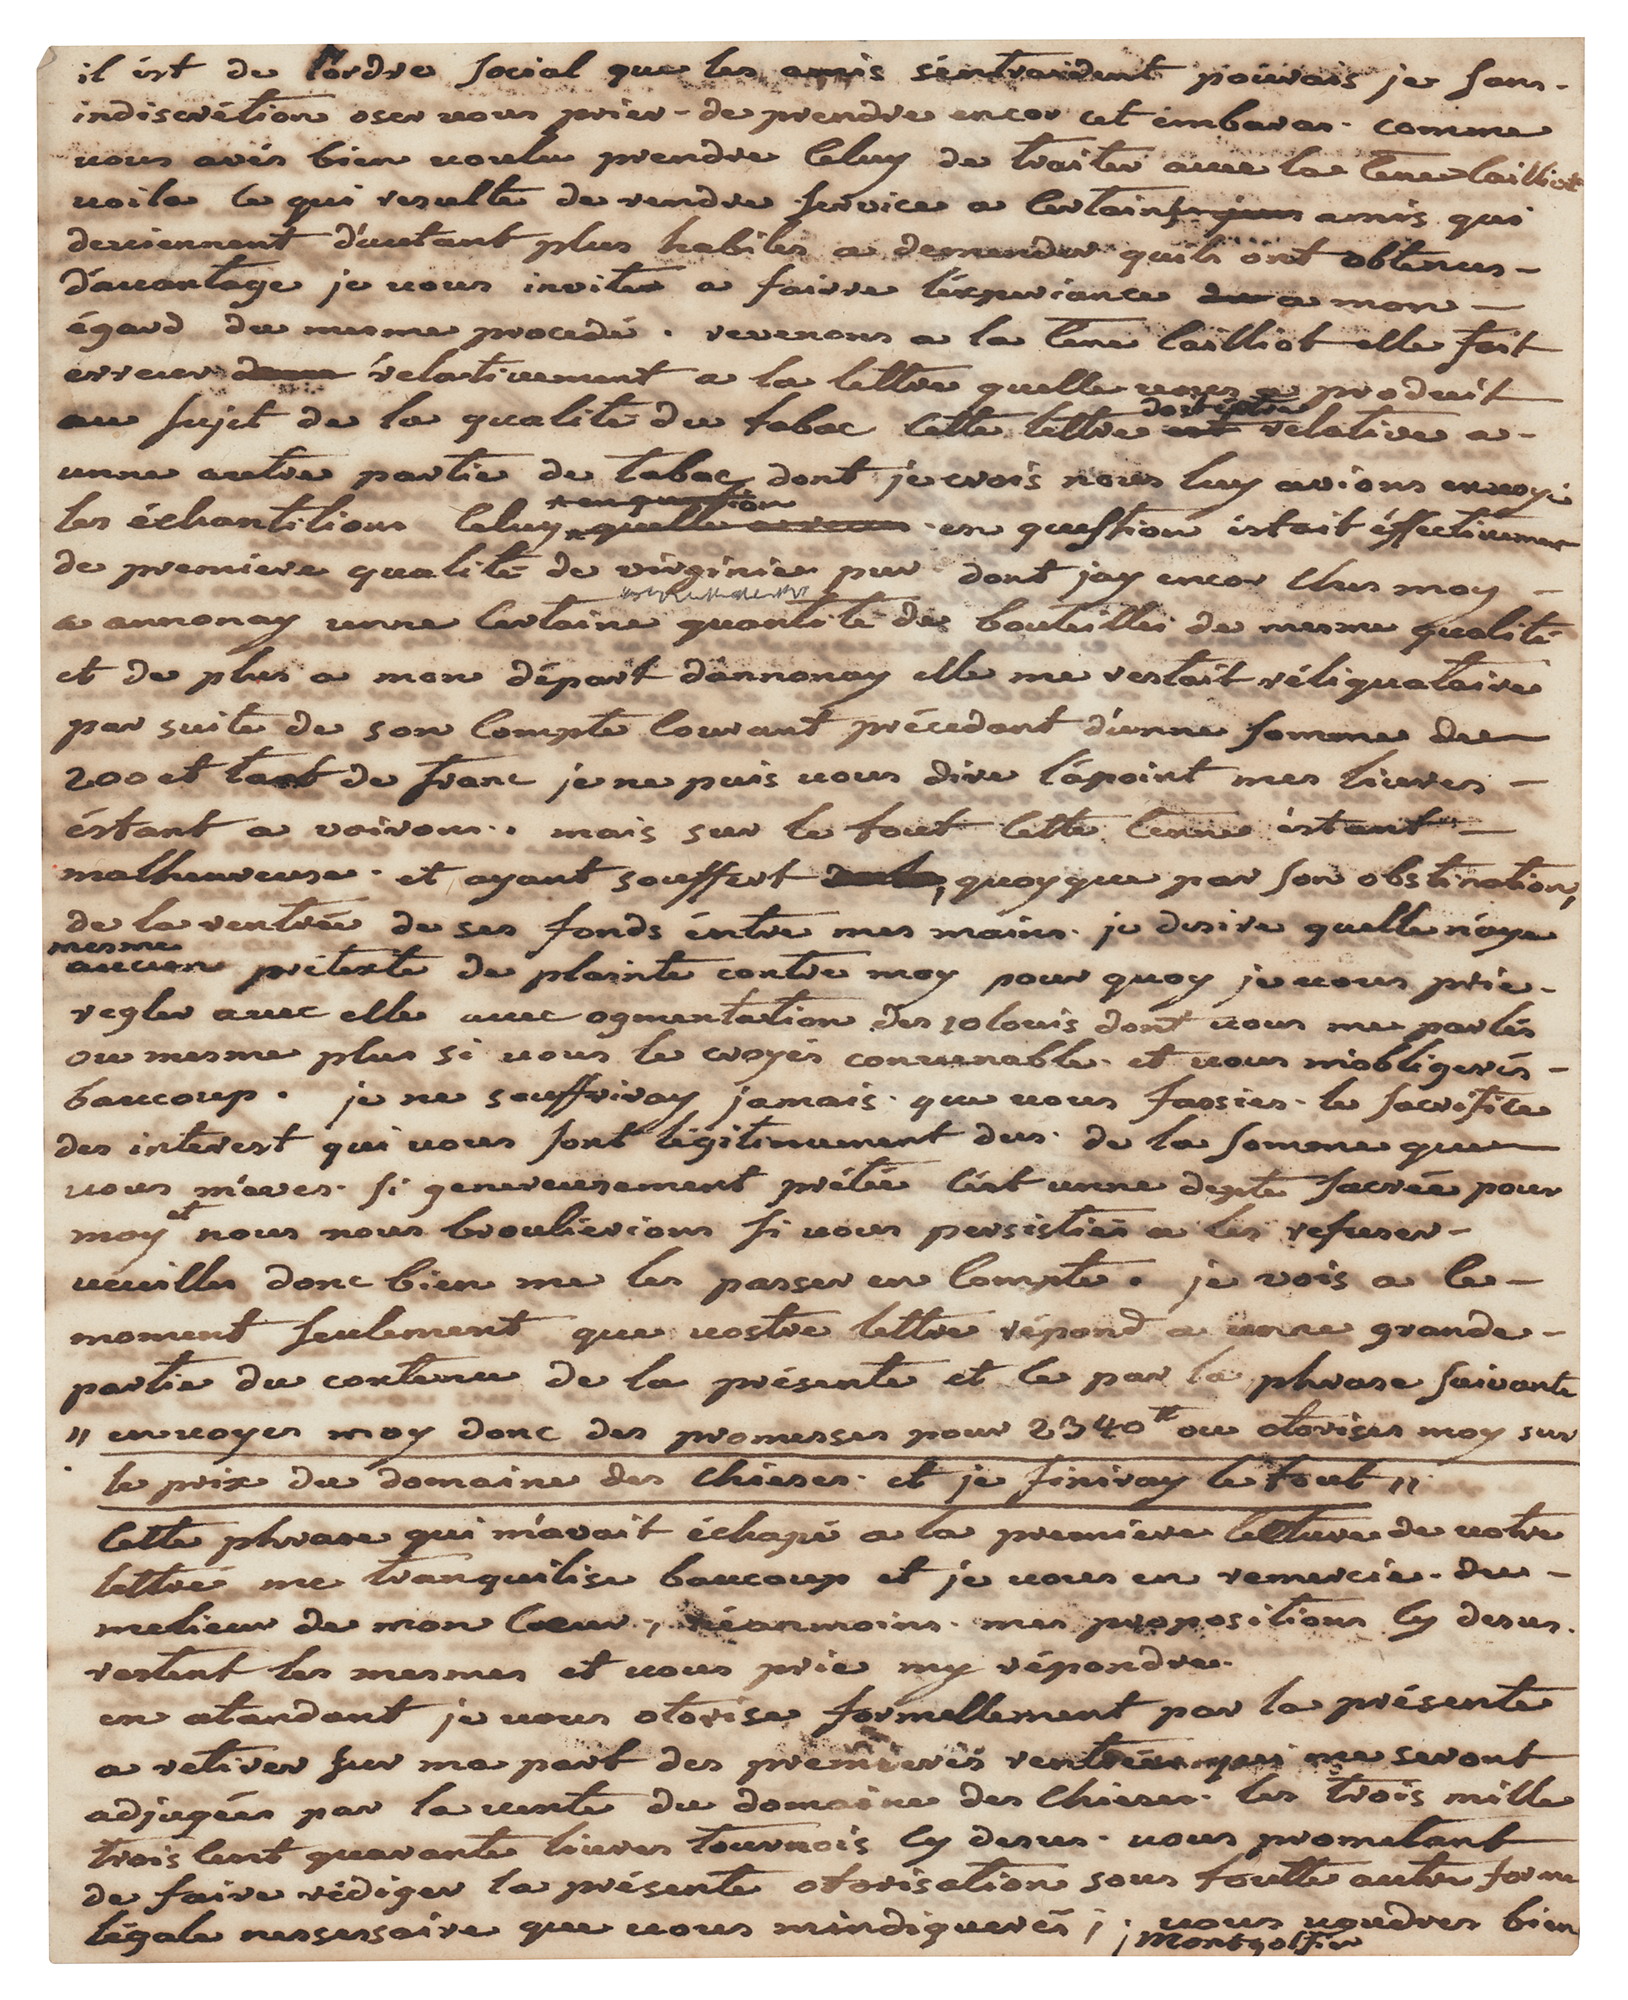 il ést de l'ordre social que les amis s'entraident pouvais je sans.
indiscrétion oser vous prier - de prendre encor cet émbaras. comme
vous avés bien voulu prendre celuy de traiter avec la Cene Cailliot
voila ce qui resulte de rendre service a certains amis qui
deviennent d'autant plus habiles a demender quils ont obtenus -
d'avantage je vous invite a fairre l'éxperiance a mon -
égard du mesme procedé. revenons a la Cene Cailliot elle fait
erreur rélativement a la lettre quelle vous a produit
au sujet de la qualité du tabac cette lettre relative a -
unne autre partie de tabac dont je crois nous luy avions envoyé
les échantilions celuy en question éstait éffectivement
de premiere qualité de virginie pur dont jay encor chés moy -
a annonay unne certaine quantité de bouteilles de mesme qualité
et de plus a mon départ d'annonay elle me restait réliquataire
par suite de son compte courant précédant d'unne somme de
200 et tant de franc je ne puis vous dire l'apoint mes livres -
éstant a voiron. mais sur le tout cette Cenne éstant -
malheureuse. et ayant souffert , quoyque par son obstination,
de la rentrée de ses fonds éntre mes mains. je desire quelle n'aye
mesme
aucun prétexte de plainte contre moy pour quoy je vous prie -
regler avec elle avec ogmentation des 10 louis dont vous me parlés
ou mesme plus si vous le croyés convenable. et vous m'obligerés -
baucoup. je ne souffriray jamais. que vous fassies. le sacrifice
des interest qui vous sont légitimement dus. de la somme que
vous m'aves. si genereusement prétée c'ést unne depte sacrée pour
moy et nous nous broulierions si vous persistiés a les refuser -
veuilles donc bien me les passer en compte. je vois a ce -
moment seulement que vostre lettre répond a unne grande -
partie du contenu de la présente et ce par la phrase suivante
" envoyes moy donc des promesses pour 2340 ou otorises moy sur
le prix du domaine des chieses. et je finiray le tout "
cette phrase qui m'avait échapé a la premiere lecture de votre
lettre me tranquilise baucoup et je vous en remercie. du -
melieur de mon cœur, néanmoins. mes propositions cy desus.
restent les mesmes et vous prie my répondre.
en atandant je vous otorise formellement par la présente
a retirer sur ma part des premieres rentrées qui me seront
adjugées par la vente du domaine des chieses. les trois mille
trois cent quarante livres tournois cy desus. vous prometant
de faire rédiger la présente otorisation sous toutte autre forme
légale nessessaire que vous m'indiquerés ; . vous voudres bien
Montgolfier